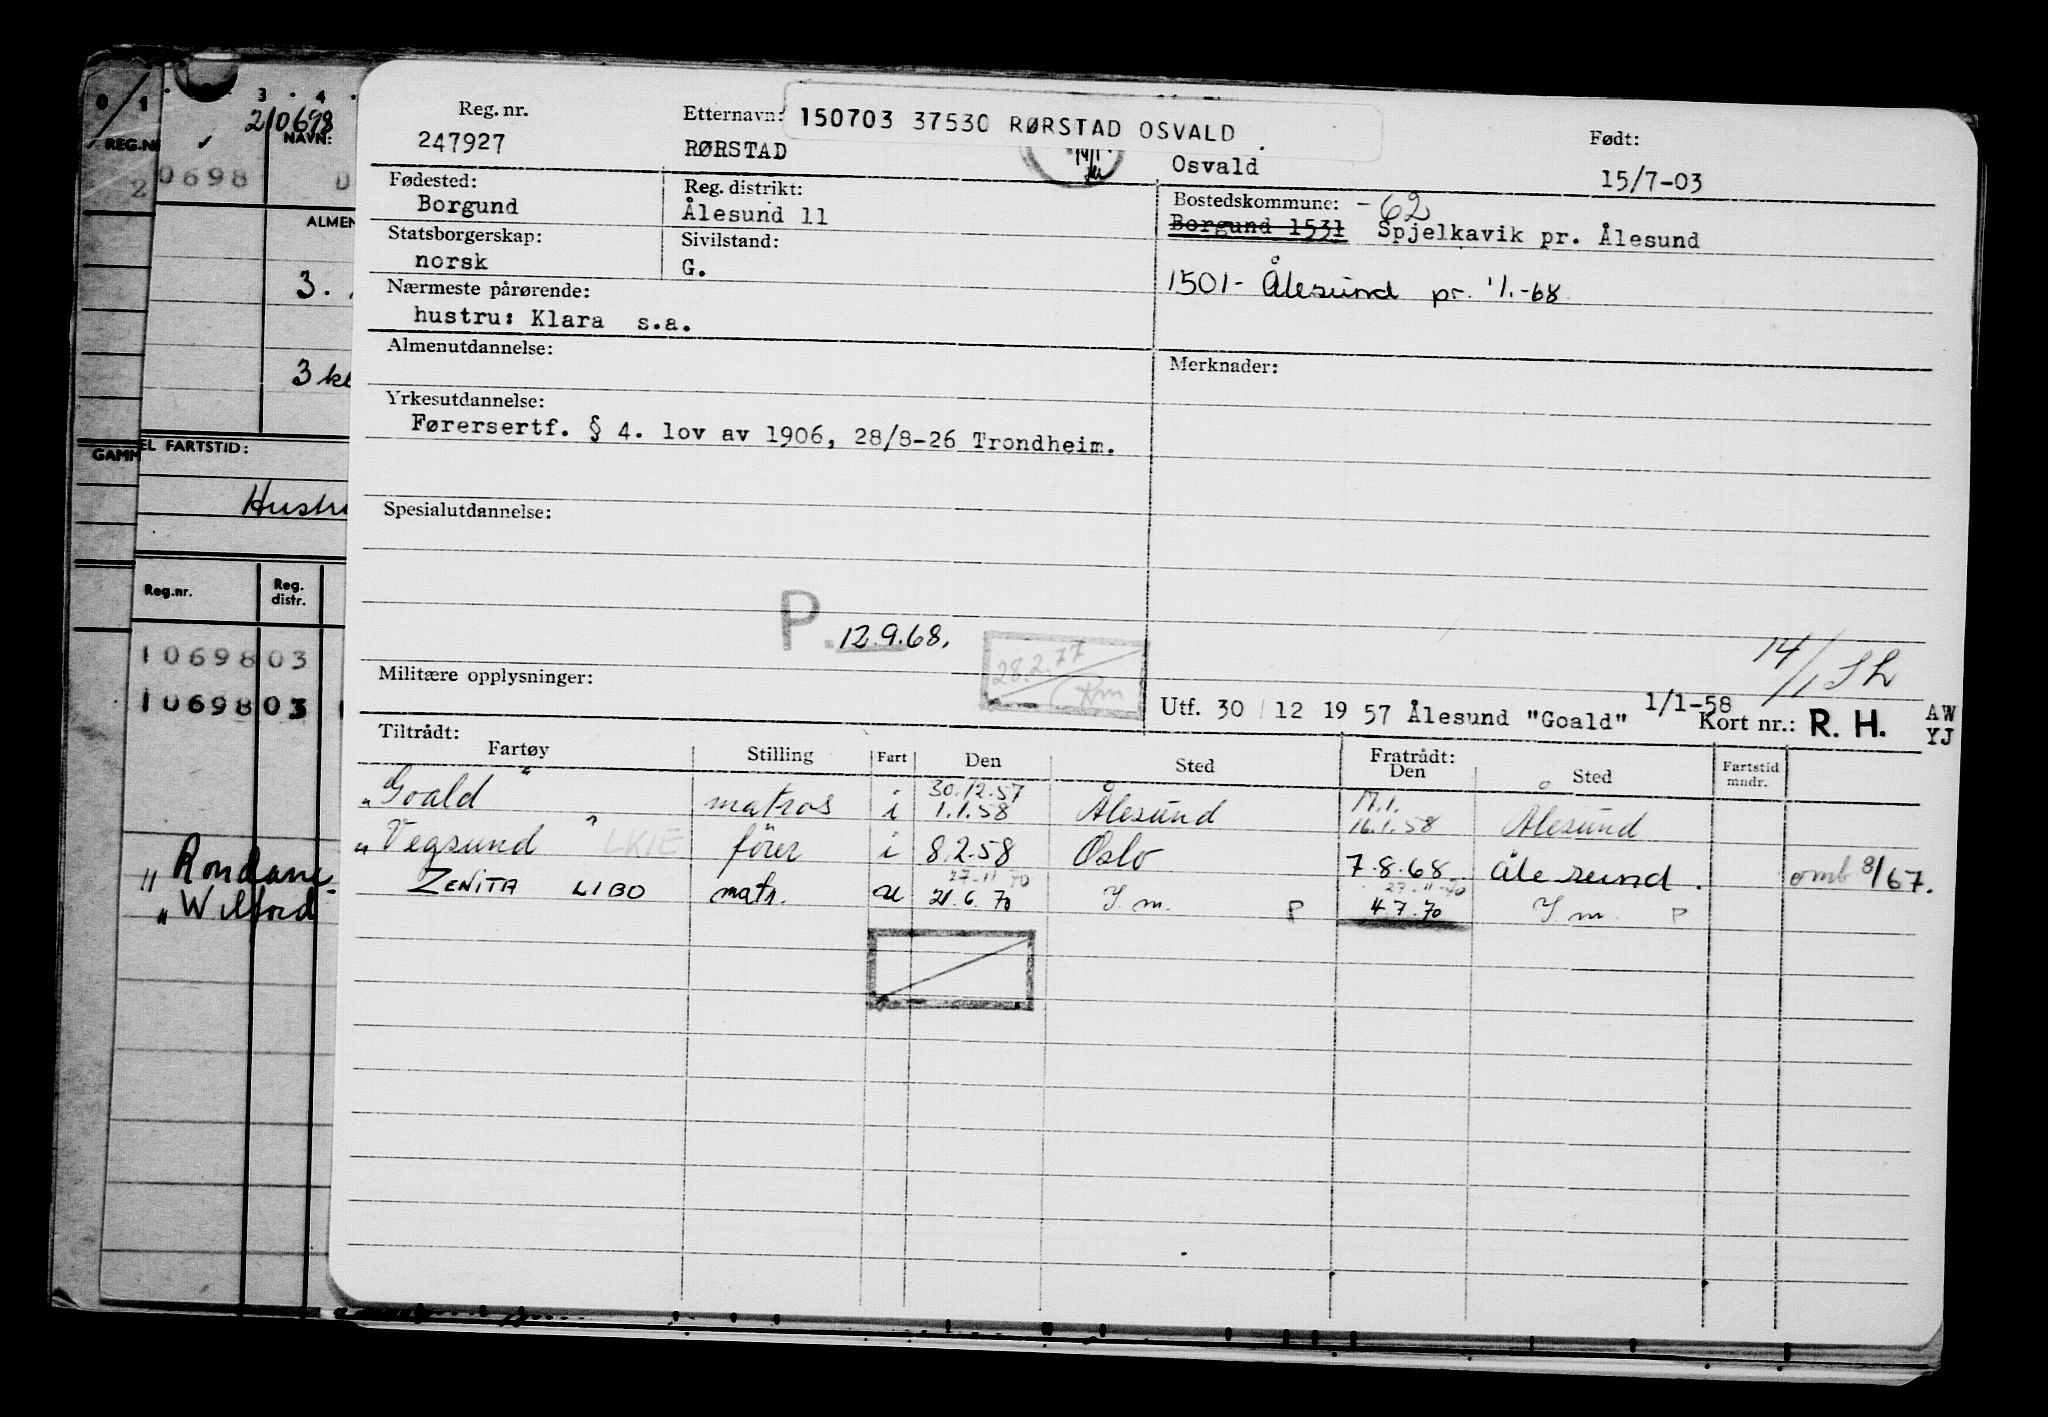 0/1 3 4
210698
REG.NR NAVN:
2 0698
ALMEN
3.
3 kl
EL FARTSTID:
GAMM
Hustru
Reg.nr. Reg. distr.
10698 03
10698 03
" Rondane
" Wilford
Reg. nr. Etternavn: 150703 37530 RØRSTAD OSVALD Født:
247927 RØRSTAD Osvald 15/7-03
Fødested: Reg. distrikt: Bostedskommune: -62
Borgund Ålesund 11 Borgund 1531 Spjelkavik pr. Ålesund
Statsborgerskap: Sivilstand:
norsk G. 1501- Ålesund pr. 1/1-68
Nærmeste pårørende:
hustru: Klara s.a.
Almenutdannelse: Merknader:
Yrkesutdannelse:
Førersertf. § 4. lov av 1906, 28/8-26 Trondheim.
Spesialutdannelse:
P. 12.9.68.
28.2.77
Rm
14/1 SL
Militære opplysninger:
Utf. 30 / 12 19 57 Ålesund "Goald" 1/1-58 Kort nr.: R. H. AW
YJ
Tiltrådt: Fratrådt:
Fartøy Stilling Fart Den Sted Den Sted Fartstid mndr.
30.12.57 17.1.
"Goald" matros i 1.1.58 Ålesund 16.1.58 Ålesund
"Vegsund" LKIE fører i 8.2.58 Oslo 7.8.68 Ålesund. omb 8/67.
27.11.70 27.11.70
ZENITA LIBO matr. u 21.6.70 I.m. P 4.7.70 I.m. P